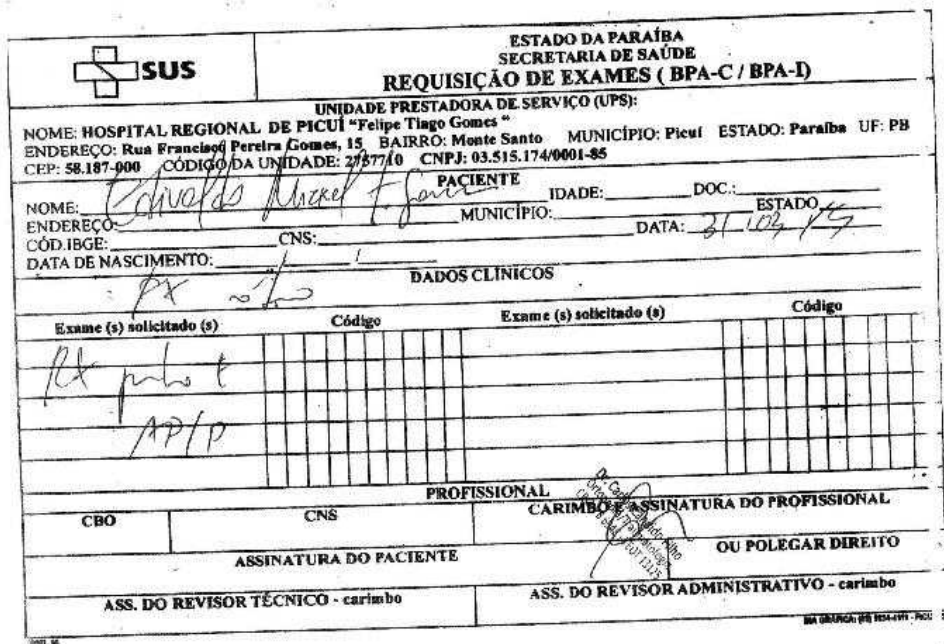 SUS
ESTADO DA PARAÍBA
SECRETARIA DE SAÚDE
REQUISIÇÃO DE EXAMES ( BPA-C / BPA-I)
UNIDADE PRESTADORA DE SERVIÇO (UPS):
NOME: HOSPITAL REGIONAL DE PICUÍ "Felipe Tiago Gomes "
ENDEREÇO: Rua Francisco Pereira Gomes, 15 BAIRRO: Monte Santo MUNICÍPIO: Picuí ESTADO: Paraíba UF: PB
CEP: 58.187-000 CÓDIGO DA UNIDADE: 2757710 CNPJ: 03.515.174/0001-85
PACIENTE
NOME: Edivaldo IDADE: DOC.:
ENDEREÇO: MUNICÍPIO: ESTADO
CÓD.IBGE: CNS: DATA: 31 / 03 /
DATA DE NASCIMENTO: / /
DADOS CLÍNICOS
Exame (s) solicitado (s) Código Exame (s) solicitado (s) Código
RX punho E
AP/P
PROFISSIONAL
CBO CNS CARIMBO E ASSINATURA DO PROFISSIONAL
ASSINATURA DO PACIENTE OU POLEGAR DIREITO
ASS. DO REVISOR TÉCNICO - carimbo ASS. DO REVISOR ADMINISTRATIVO - carimbo